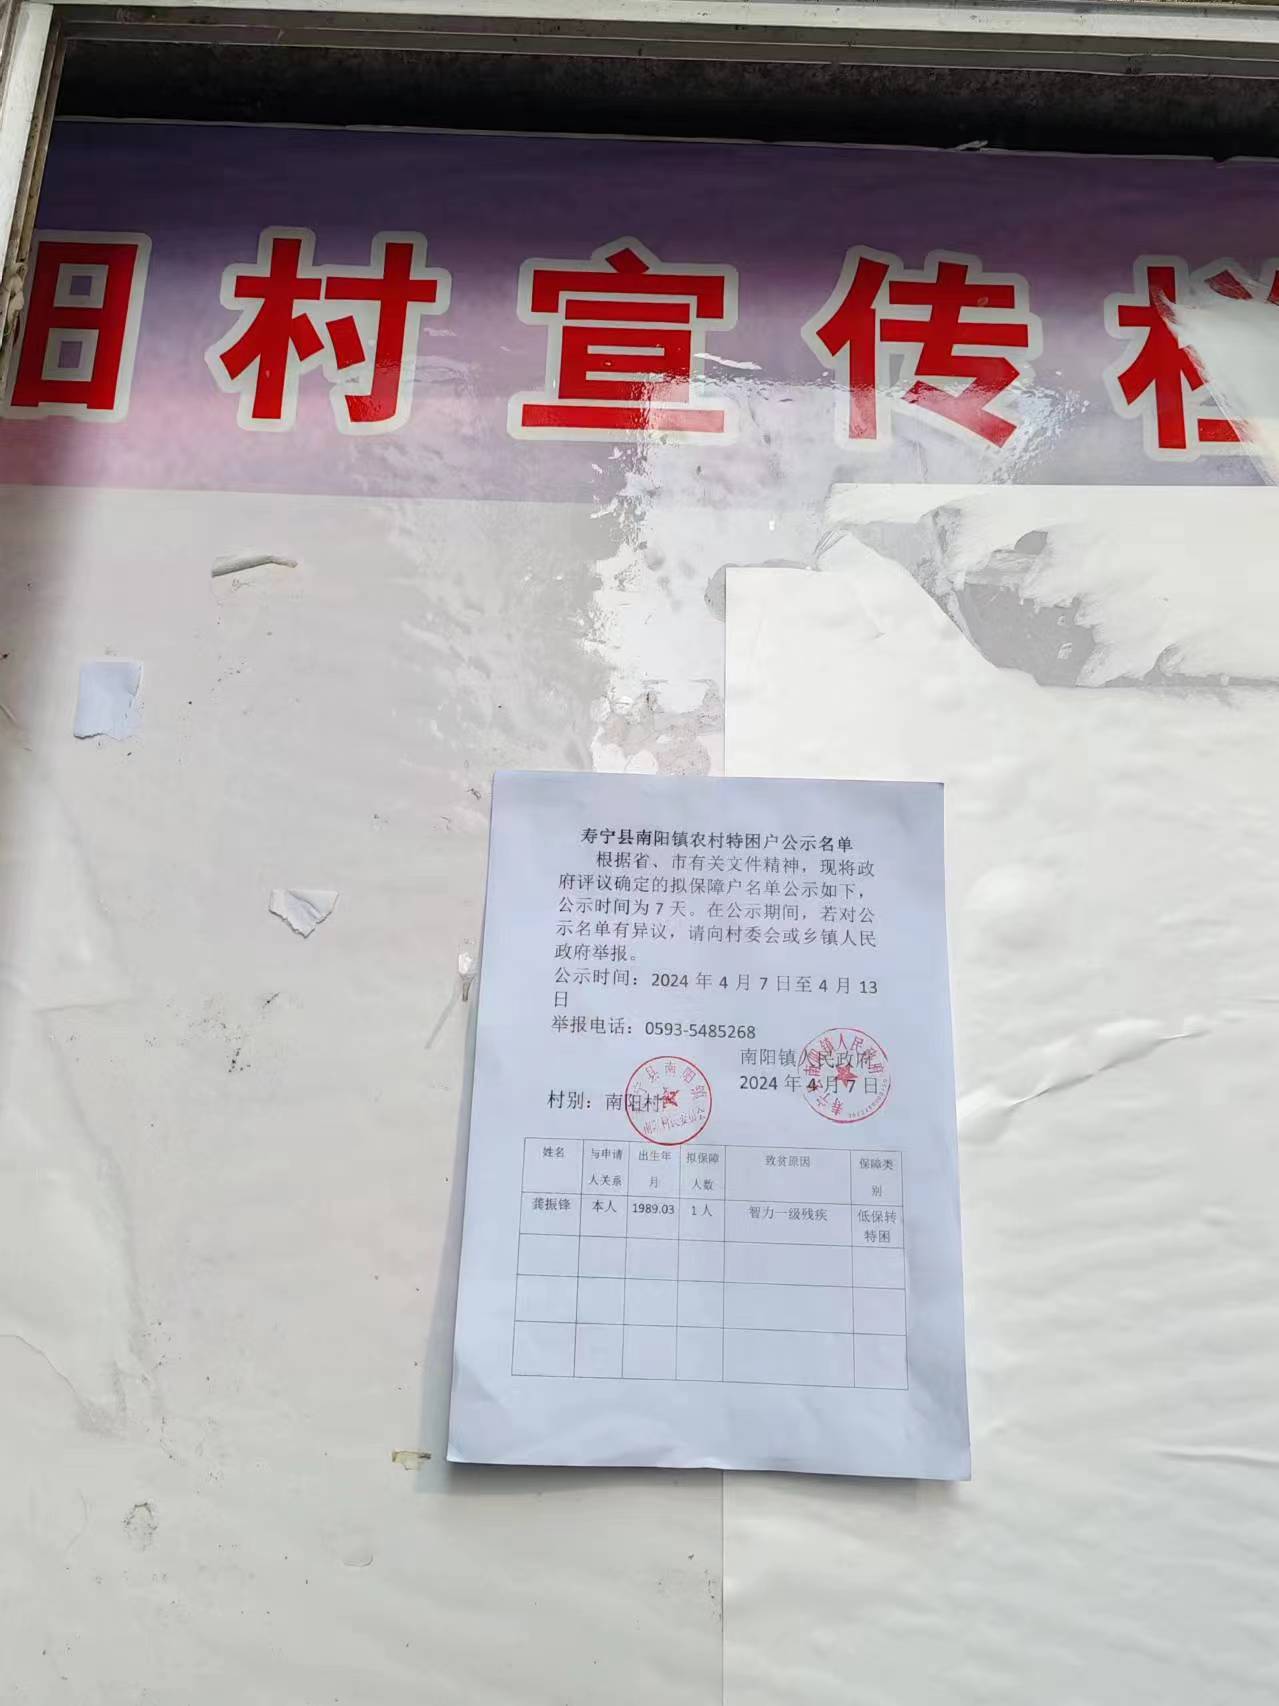 阳村宣传栏
寿宁县南阳镇农村特困户公示名单
根据省、市有关文件精神，现将政
府评议确定的拟保障户名单公示如下，
公示时间为7天。在公示期间，若对公
示名单有异议，请向村委会或乡镇人民
政府举报。
公示时间：2024年4月7日至4月13
日
举报电话：0593-5485268
南阳镇人民政府
2024年4月7日
村别：南阳村
姓名 与申请人关系 出生年月 拟保障人数 致贫原因 保障类别
龚振锋 本人 1989.03 1人 智力一级残疾 低保转特困